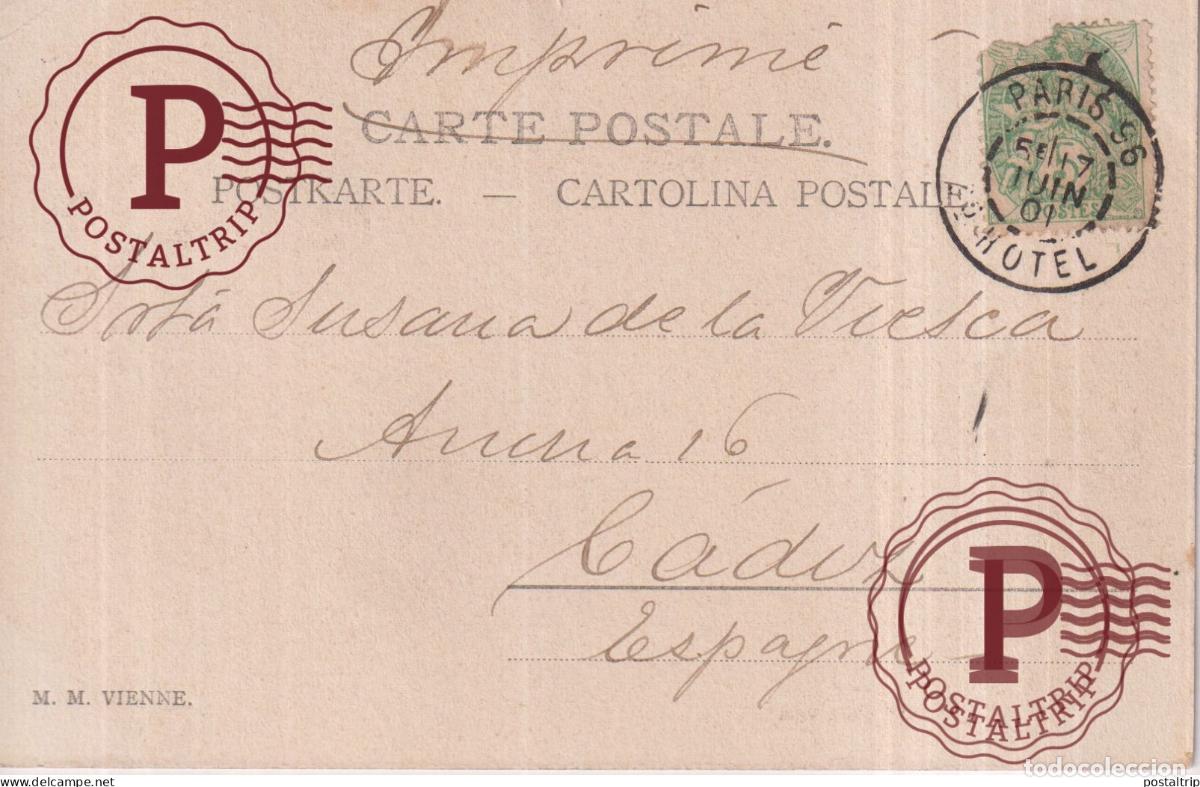 Imprimé
CARTE POSTALE.
POSTKARTE. — CARTOLINA POSTALE
PARIS 96
5E/17
JUIN
01
HOTEL
POSTES
P
POSTALTRIP
Srtá Susana de la Viesca
16
Cádiz
Espagne
P
POSTALTRIP
POSTALTRIP
M. M. VIENNE.
todocoleccion
www.delcampe.net
postaltrip